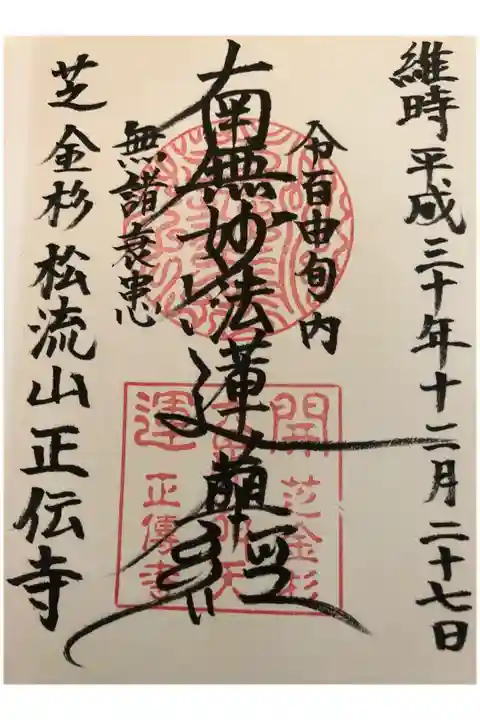 維時 平成三十年十二月二十七日
令百由旬内
南無妙法蓮華経
無諸衰患
芝金杉 松流山正伝寺
開運
芝金杉
正傳寺